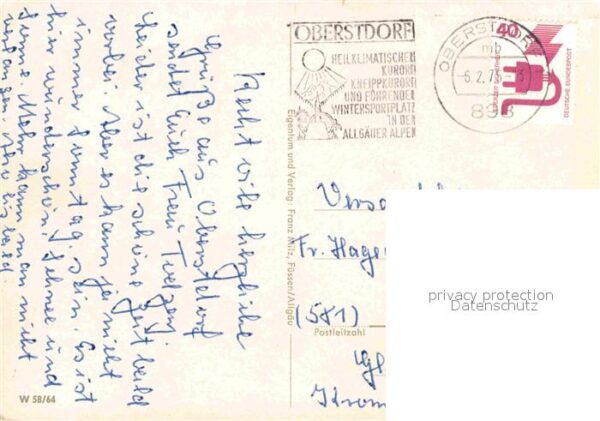 Recht viele herzliche
Grüße aus Oberstdorf
sendet Euch Frau
Leider ist die schöne Zeit bald
vorbei. Aber es kann ja nicht
immer Sonntag sein. Es ist
hier wunderschön. Schnee und
Sonne. Mehr kann man nicht
verlangen. Also bis bald
W 58/64
Eigentum und Verlag: Franz Milz, Füssen/Allgäu
OBERSTDORF
HEILKLIMATISCHER
KURORT
KNEIPPKURORT
UND FÜHRENDER
WINTERSPORTPLATZ
IN DER
ALLGÄUER ALPEN
OBERSTDORF
mb
-6.2.73-
898
40
DEUTSCHE BUNDESPOST
Fr. Hagen
(581)
Postleitzahl
privacy protection
Datenschutz